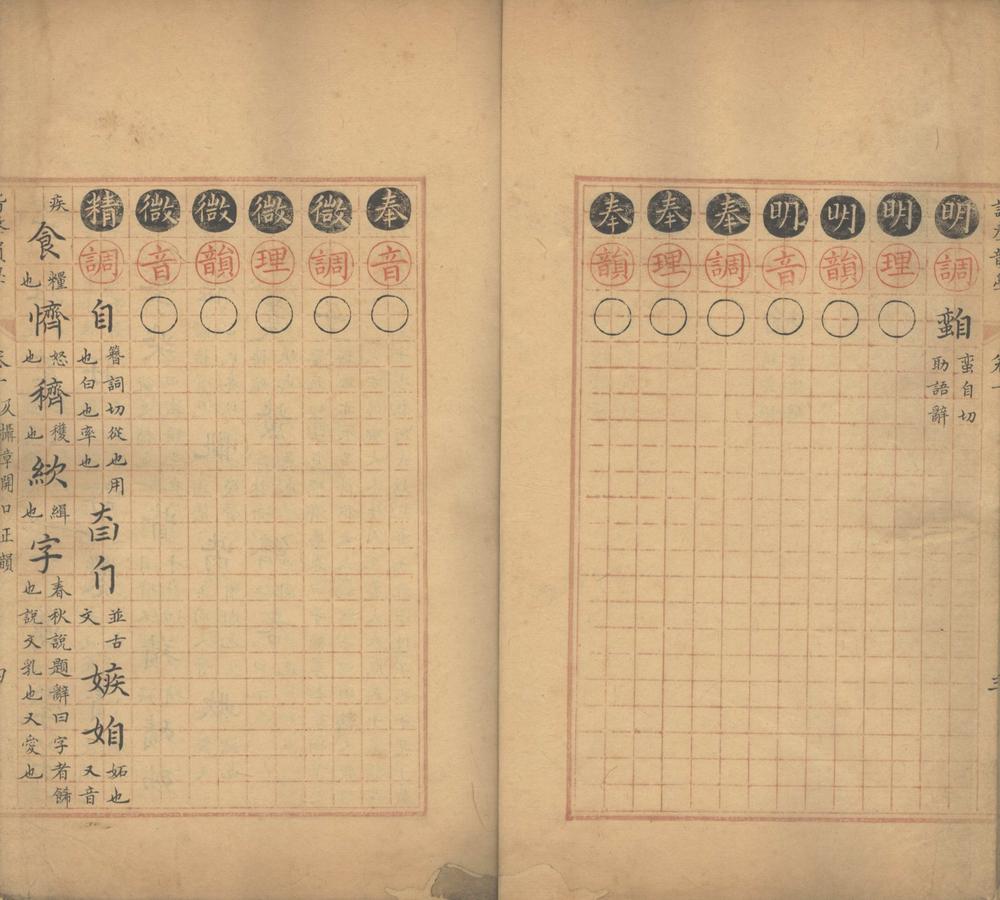 明調蛮自切助語辭
明理○
明韻○
明音○
奉調○
奉理○
奉韻○
奉音○
微調○
微理○
微韻○
微音○
精調自簪詞切從也用也白也率也並古文嫉妬也又音
疾食糧也懠怒也穧穫也絘緝也字春秋說題辭曰字者飾也說文乳也又愛也
攝章開口正韻